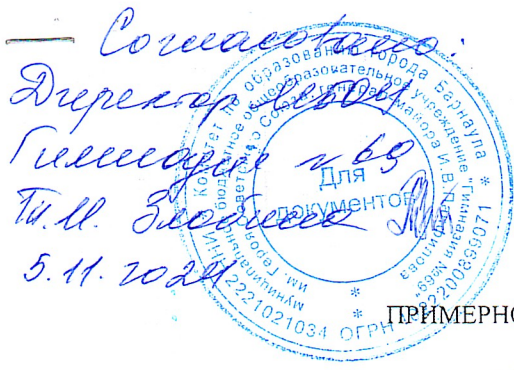 — Согласовано:
Директор МБОУ
Гимназия № 69
Т.М. Злобина
5.11.2024
Комитет по образованию города Барнаула *
муниципальное бюджетное общеобразовательное учреждение "Гимназия №69"
им. Героя Советского Союза, генерал-майора И.В. Панфилова
Для
документов
2221021034 ОГРН
2200899071
ПРИМЕРНО